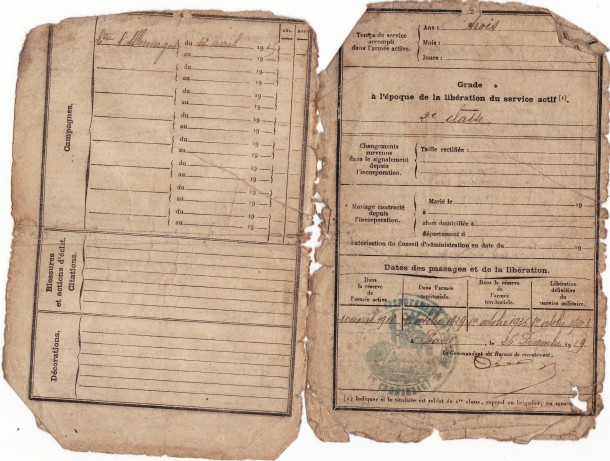 4
Campagnes.
du 12 avril 191
au 19
du 19
au 19
du 19
au 19
du 19
au 19
du 19
au 19
du 19
au 19
du 19
au
Blessures
et actions d'éclat.
Citations.
Décorations.
5
Temps de service
accompli
dans l'armée active.
Ans : trois
Mois :
Jours :
Grade
à l'époque de la libération du service actif (1).
2e classe
Changements
survenus
dans le signalement
depuis
l'incorporation.
Taille rectifiée :
Mariage contracté
depuis
l'incorporation.
Marié le 19
à
alors domiciliée à
département d
Autorisation du Conseil d'administration en date du 19
Dates des passages et de la libération.
Dans
la réserve
de
l'armée active.
Dans l'armée
territoriale.
Dans
la réserve
de l'armée
territoriale.
Libération
définitive
du
service militaire.
26 Décembre 1919.
Le Commandant du Bureau de recrutement,
RECRUTEMENT
COMMANDANT
(1) Indiquer si le titulaire est soldat de 1re classe, caporal ou brigadier, ou sous-